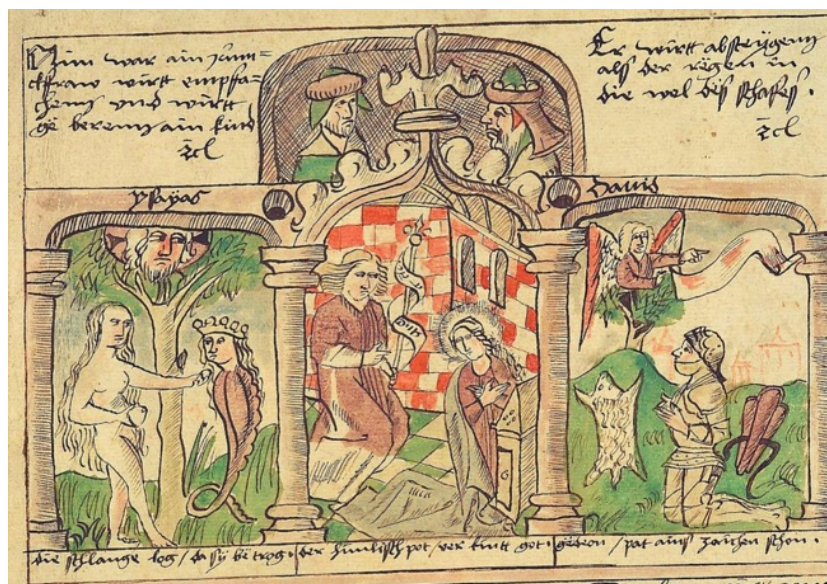 Nim war ain Junn=
ckfraw wirtt empfa=
chenn vnd wirtt
ge berenn ain kind
ꝛcl
Er wirtt absteygenn
als der regen in
die wol des schafes.
ꝛcl
ysayas
Dauid
die schlange log / da sÿ betrog.
der himlisch pot / ver kutt got.
gedeon / pat ains zaichen schon.